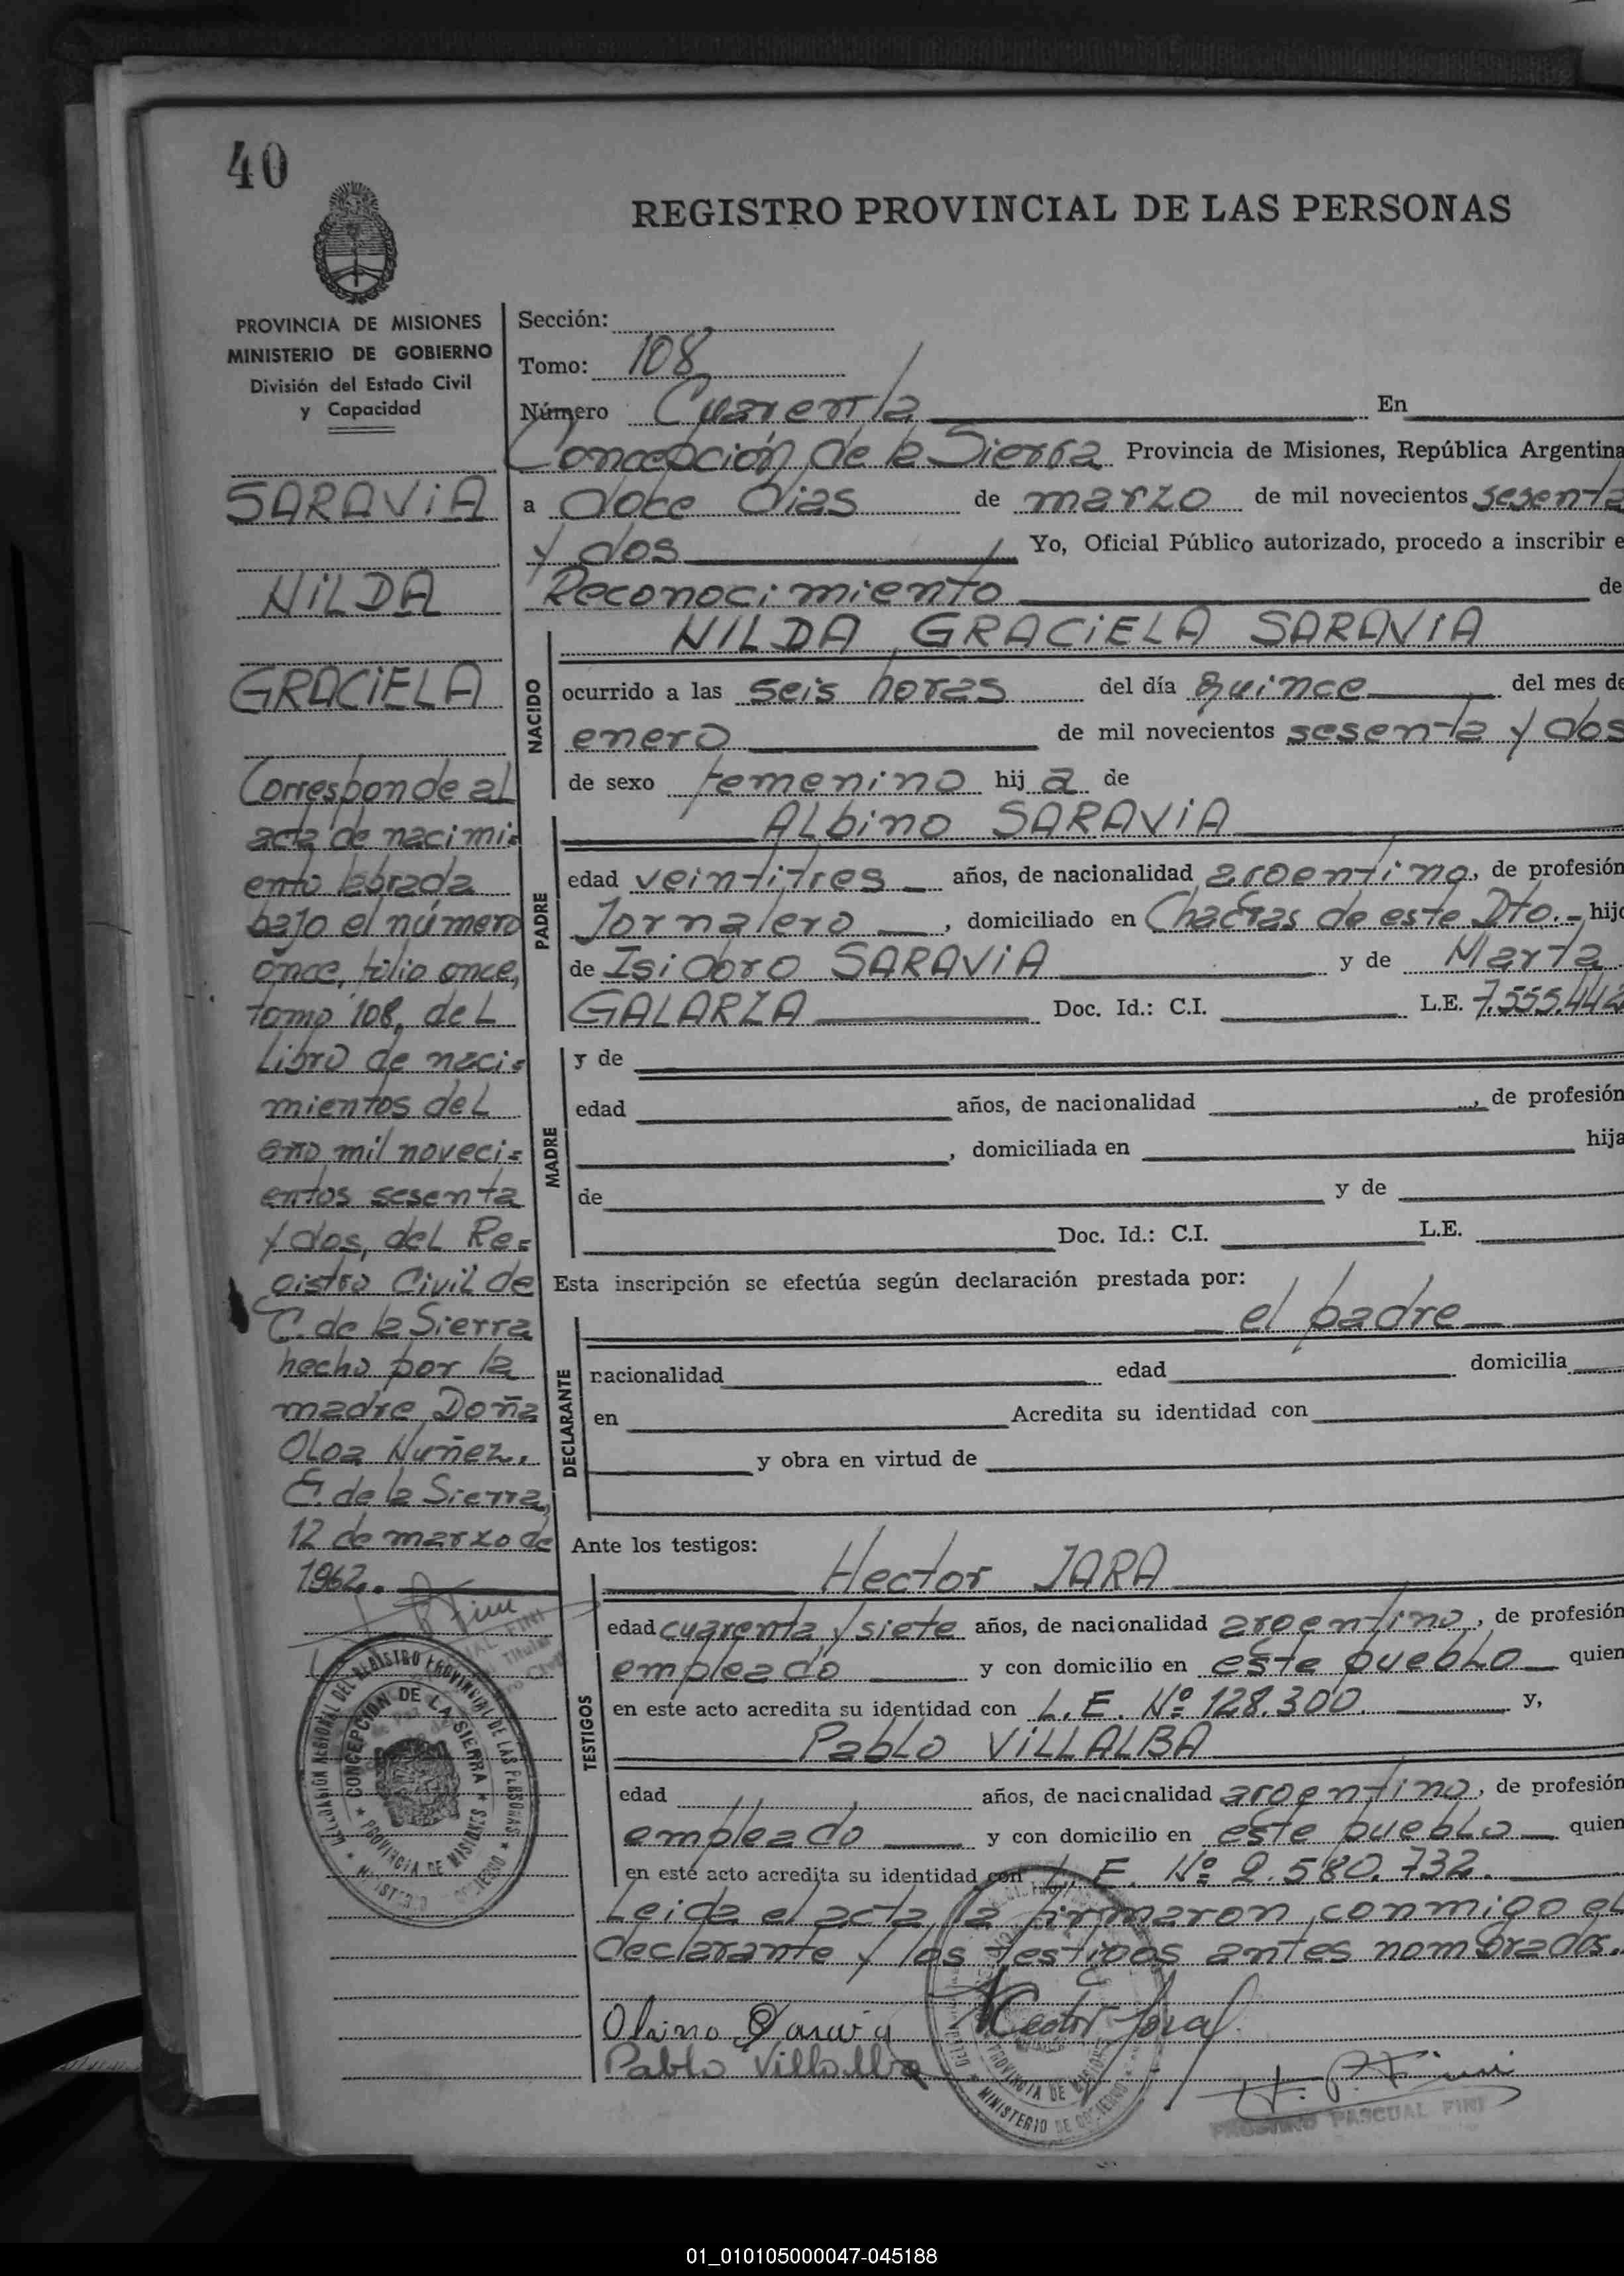 40
REGISTRO PROVINCIAL DE LAS PERSONAS
PROVINCIA DE MISIONES
MINISTERIO DE GOBIERNO
División del Estado Civil
y Capacidad
SARAVIA
NILDA
GRACIELA
Corresponde al
acta de nacimi=
ento labrada
bajo el número
once, folio once,
tomo 108, del
Libro de naci=
mientos del
año mil noveci=
entos sesenta
y dos, del Re=
gistro Civil de
C. de la Sierra
hecho por la
madre Doña
Olga Nuñez.
C. de la Sierra,
12 de marzo de
1962.
Sección:
Tomo: 108
Número Cuarenta En
Concepción de la Sierra Provincia de Misiones, República Argentina
a doce dias de marzo de mil novecientos sesenta
y dos Yo, Oficial Público autorizado, procedo a inscribir e
Reconocimiento de
NACIDO
NILDA GRACIELA SARAVIA
ocurrido a las seis horas del día quince del mes de
enero de mil novecientos sesenta y dos
de sexo femenino hij a de
PADRE
Albino SARAVIA
edad veintitres años, de nacionalidad argentino, de profesión
Jornalero, domiciliado en Chacras de este Dto. hijo
de Isidoro SARAVIA y de Marta
GALARZA Doc. Id.: C.I. L.E. 7.555.442
MADRE
y de
edad años, de nacionalidad , de profesión
, domiciliada en hija
de y de
Doc. Id.: C.I. L.E.
Esta inscripción se efectúa según declaración prestada por:
DECLARANTE
el padre
nacionalidad edad domicilia
en Acredita su identidad con
y obra en virtud de
Ante los testigos:
TESTIGOS
Hector JARA
edad cuarenta y siete años, de nacionalidad argentino, de profesión
empleado y con domicilio en este pueblo quien
en este acto acredita su identidad con L.E. Nº 128.300. y,
Pablo VILLALBA
edad años, de nacionalidad argentino, de profesión
empleado y con domicilio en este pueblo quien
en este acto acredita su identidad con L.E. Nº 2.580.732.
Leida el acta, la firmaron conmigo el
declarante y los testigos antes nombrados.
Albino Saravia Hector Jara
Pablo Villalba
H. P. Fini
PASCUAL FINI
DELEGACIÓN REGIONAL DEL REGISTRO PROVINCIAL DE LAS PERSONAS
CONCEPCION DE LA SIERRA
PROVINCIA DE MISIONES
MINISTERIO DE GOBIERNO
PROVINCIA DE MISIONES
MINISTERIO DE GOBIERNO
01_010105000047-045188